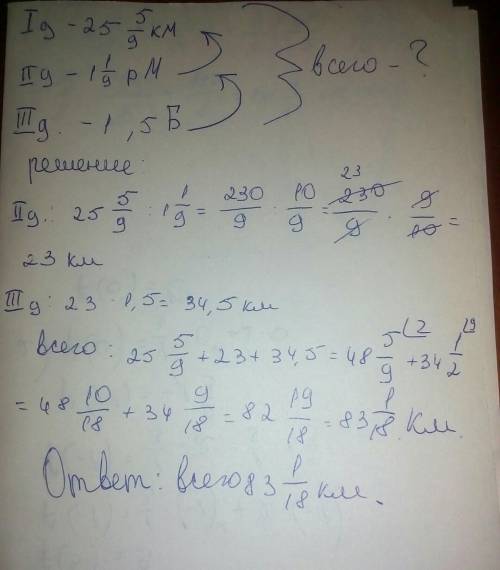 Iд - 25 5/9 км
IIд - 1 1/9 р М
всего - ?
IIIд. - 1,5 Б
решение:
IIд.: 25 5/9 : 1 1/9 = 230/9 : 10/9 = 230/9 · 9/10 =
23
23 км
IIIд: 23 · 1,5 = 34,5 км
всего: 25 5/9 + 23 + 34,5 = 48 5/9 + 34 1/2
(2 (9
= 48 10/18 + 34 9/18 = 82 19/18 = 83 1/18 км.
Ответ: всего 83 1/18 км.